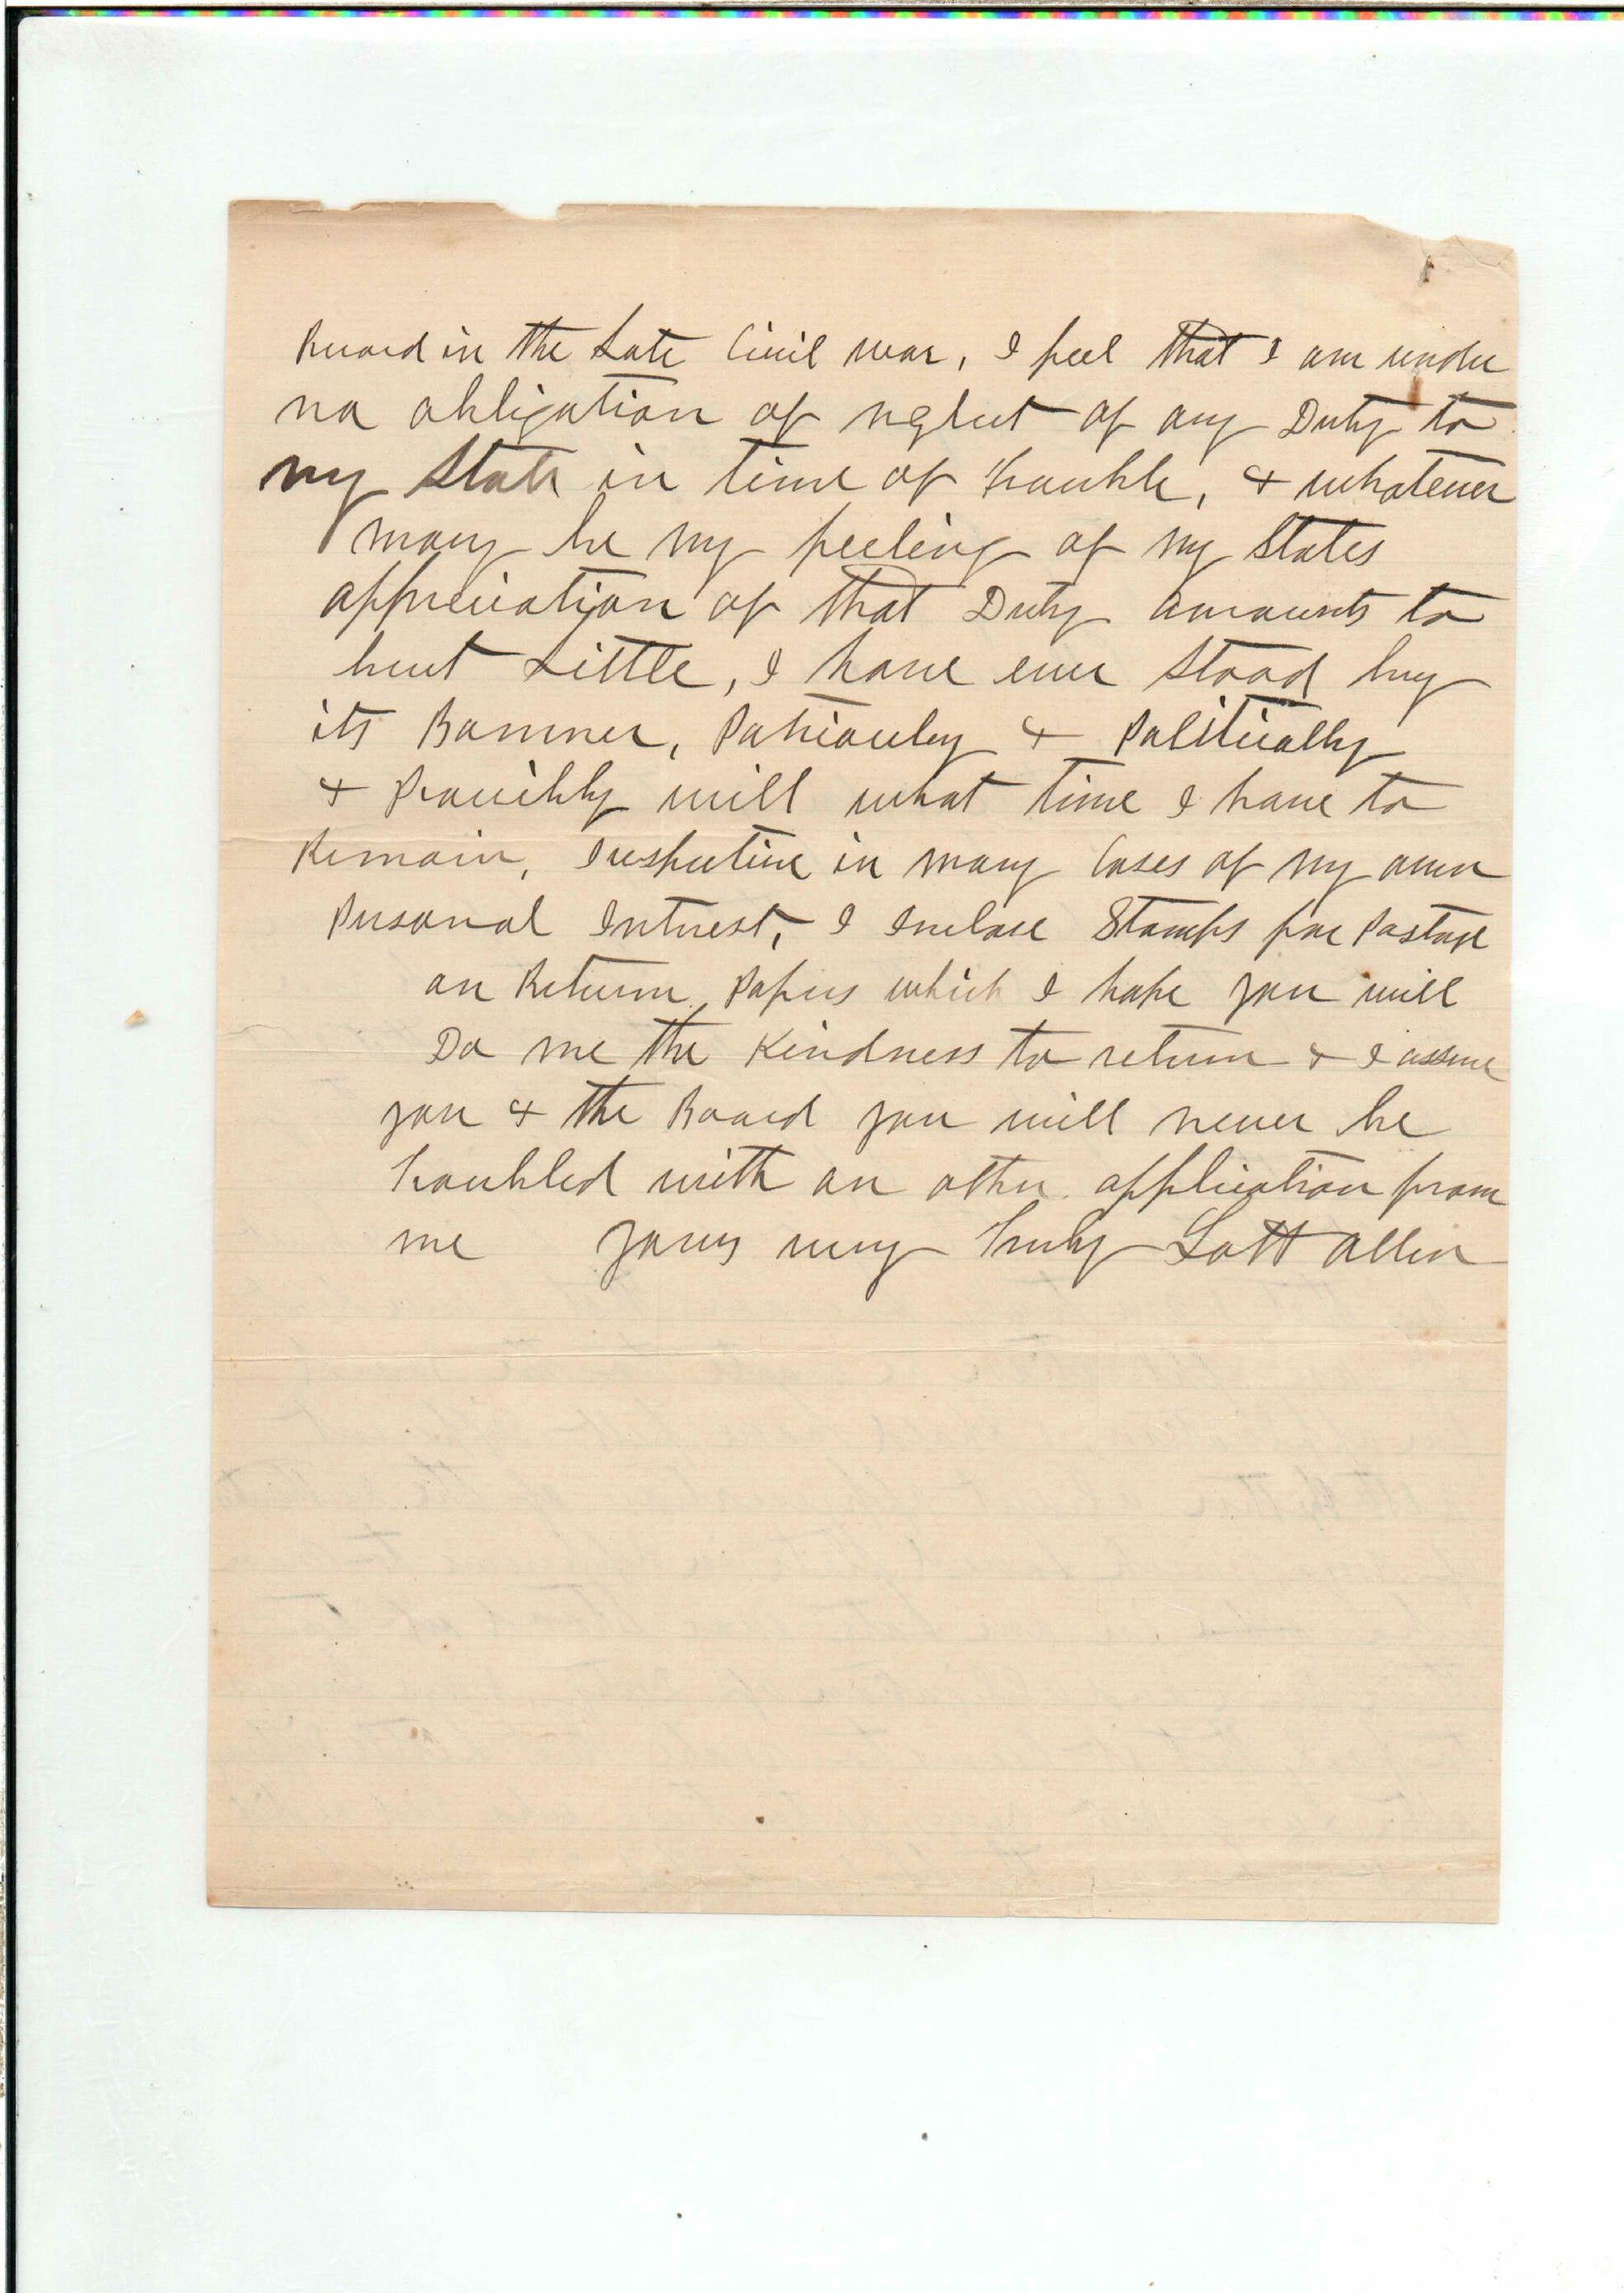 Record in the Late Civil war, I feel that I am under
no obligation of neglect of any Duty to
my State in time of trouble, & whatever
may be my feeling of my States
appreciation of that Duty amounts to
but Little, I have ever Stood by
its Banner, & Politically
& Possibly will what time I have to
Remain, Irespective in many Cases of my own
Personal Interest, I Inclose Stamps for Postage
on Return Papers which I hope you will
Do me the Kindness to return & I assure
you & the Board you will never be
troubled with an other application from
me Yours very Truly Lott Allen